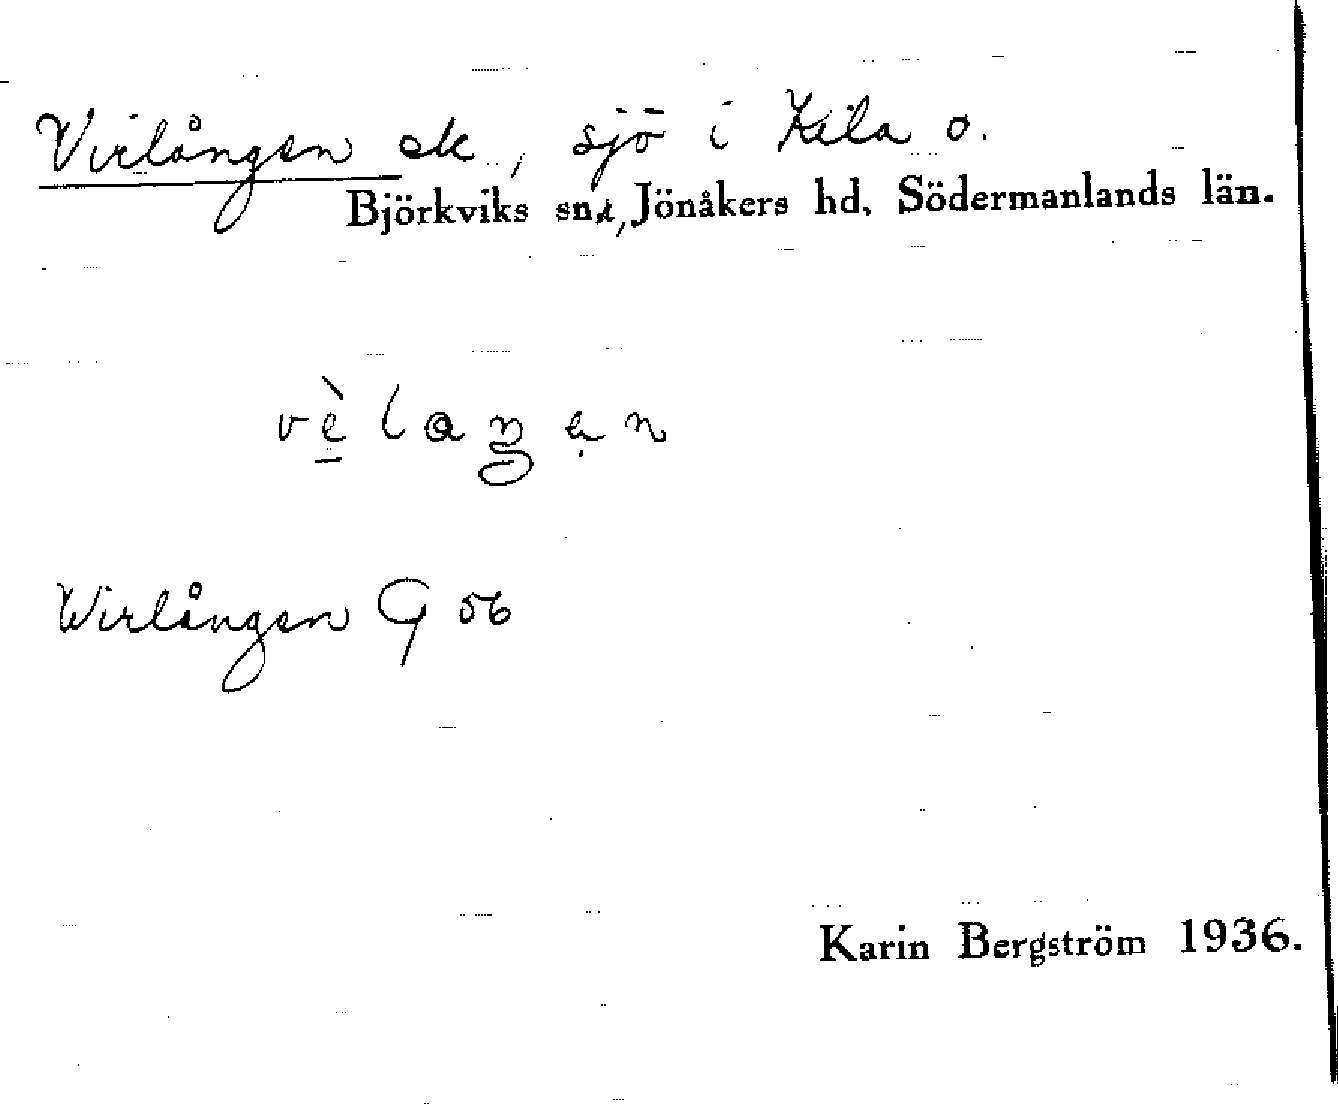 Virlången ek., sjö i Kila o.
Björkviks snr, Jönåkers hd, Södermanlands län.
vè̱laŋən
Wirlången G 56
Karin Bergström 1936.